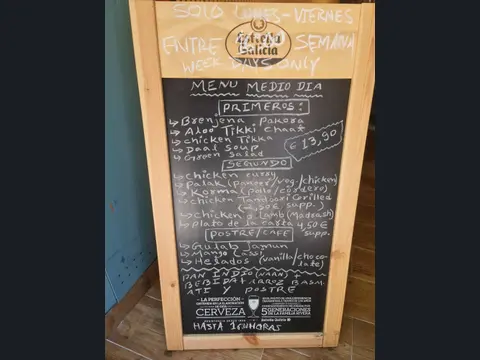 SOLO LUNES-VIERNES
Estrella
Galicia
ENTRE SEMANA
WEEK DAYS ONLY
MENU MEDIO DIA
PRIMEROS:
Brenjena pakora
Aloo Tikki chaat
chicken Tikka
Daal soup
Green Salad
€ 13,90
SEGUNDO
chicken curry
Palak (paneer/veg/chicken)
Korma (pollo/cordero)
chicken Tandoori Grilled
supp.)
chicken o lamb (Madrash)
plato de la carta 4,50 €
supp.
POSTRE/CAFE
Gulab Jamun
Mango Lassi
Helados (vanilla/choco-
late)
PAN INDIO (NAAN) +
BEBIDA + ARROZ BASM
ATI Y POSTRE
LA PERFECCIÓN
CERVEZA
5 GENERACIONES
DE LA FAMILIA RIVERA
Estrella Galicia
HASTA 16 HORAS